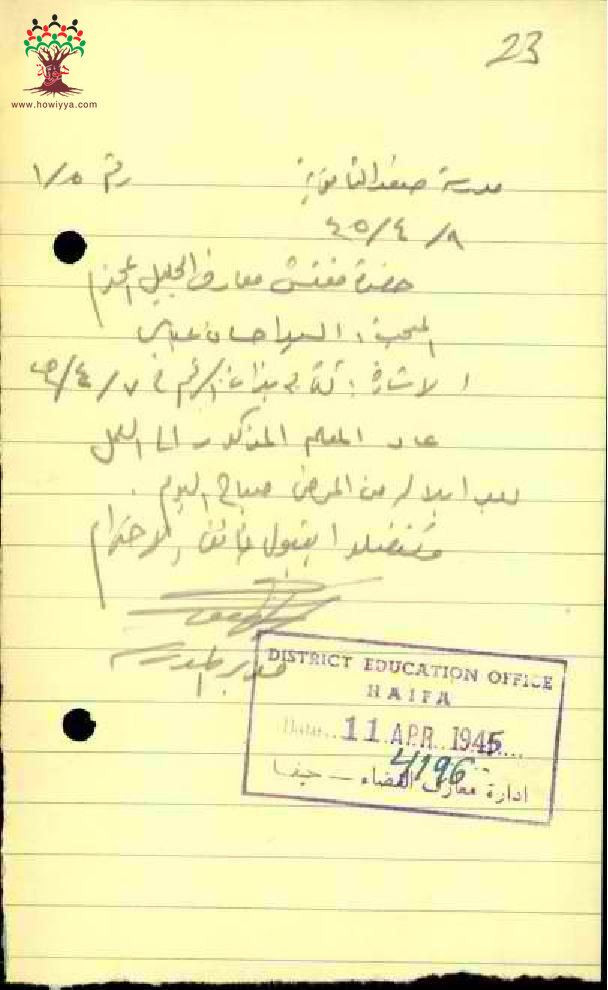 www.howiyya.com
23
مدرسة صفد الثانوية رقم ١/٥
٤٥/٤/٨
حضرة مفتش معارف الجليل المحترم
السيد احسان عباس
الاشارة : كتابي بذات الرقم في ٤٥/٤/٧
عاد المعلم المذكور الى العمل
بعد ابلاله من المرض صباح اليوم .
وتفضلوا بقبول فائق الاحترام
مدير المدرسة
DISTRICT EDUCATION OFFICE
HAIFA
Date... 11 APR 1945....
4196
ادارة معارف القضاء — حيفا